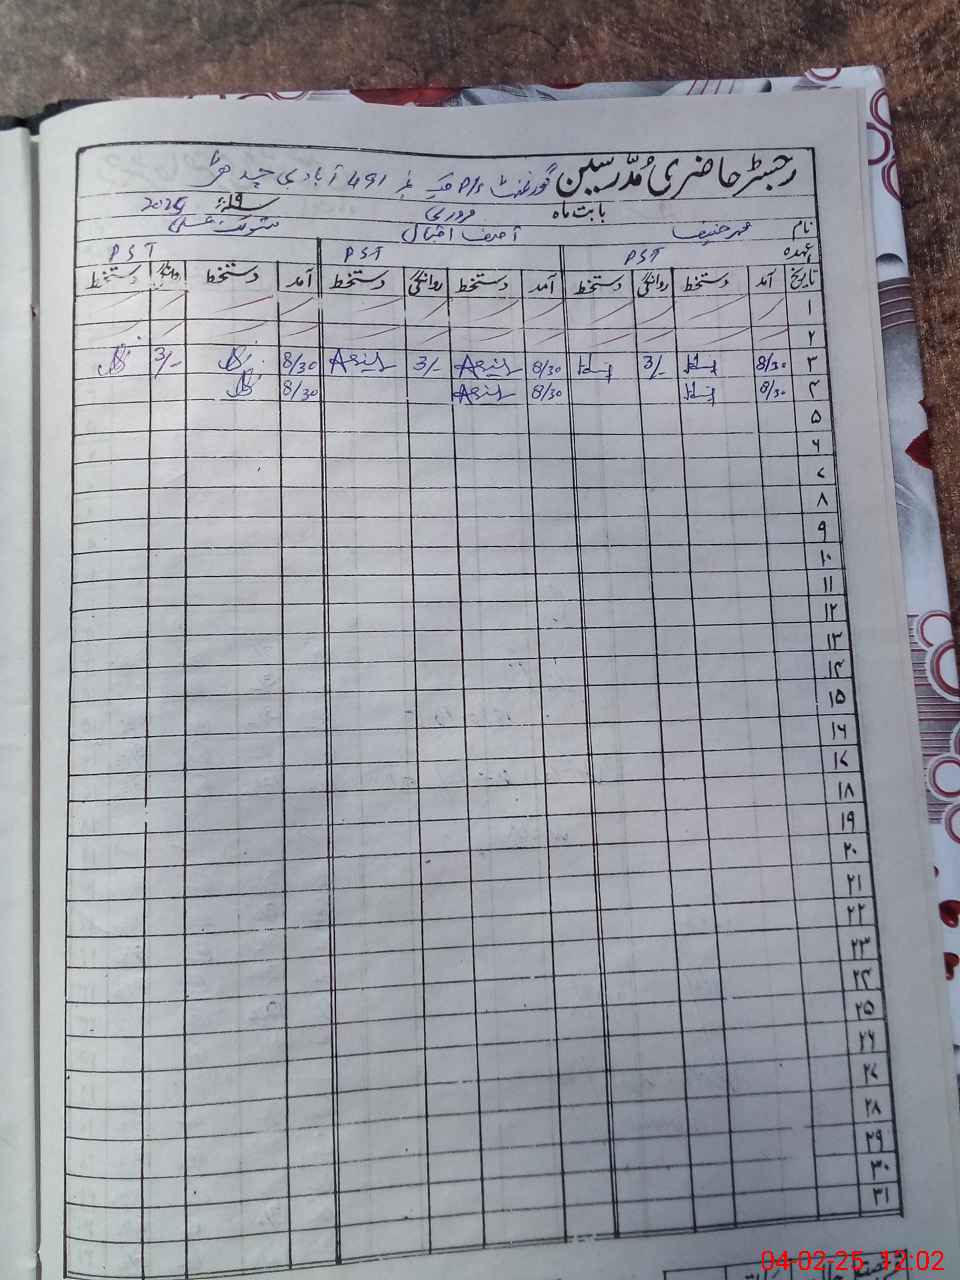 رجسٹر حاضری مُدّرسین گورنمنٹ P/S چک نمبر 491 آبادی چدھڑ
بابت ماہ فروری 2025ء
نام محمد حنیف آصف اقبال شوکت علی
عہدہ PST PST PST
تاریخ آمد دستخط روانگی دستخط آمد دستخط روانگی دستخط آمد دستخط روانگی دستخط
۱
۲
۳ 8/30 3/- 8/30 Asif 3/- Asif 8/30 3/-
۴ 8/30 8/30 Asif 8/30
۵
۶
۷
۸
۹
۱۰
۱۱
۱۲
۱۳
۱۴
۱۵
۱۶
۱۷
۱۸
۱۹
۲۰
۲۱
۲۲
۲۳
۲۴
۲۵
۲۶
۲۷
۲۸
۲۹
۳۰
۳۱
04-02-25 12:02